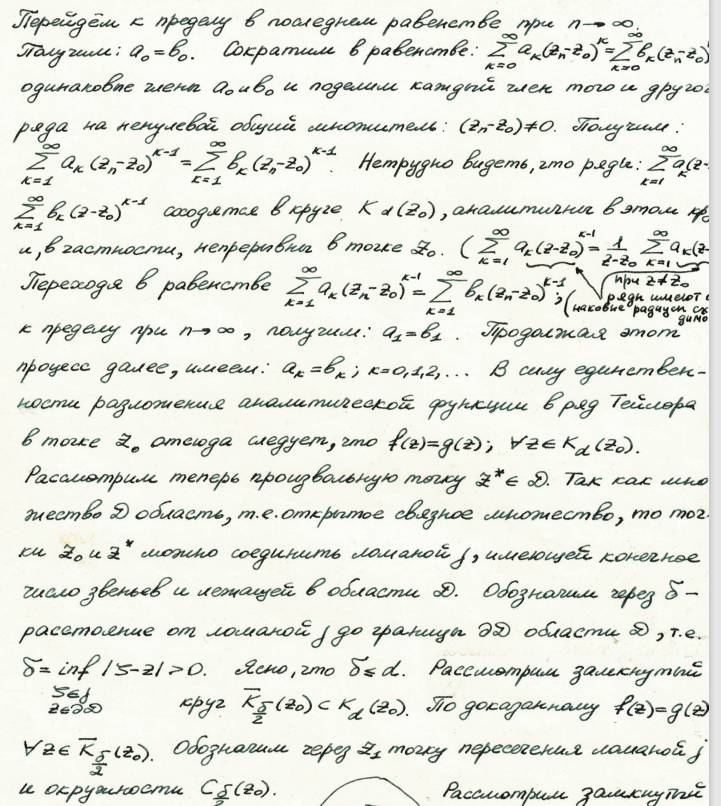 Перейдём к пределу в последнем равенстве при n→∞.
Получим: a₀=b₀. Сократим в равенстве: ∑_{k=0}^{∞} aₖ(zₙ-z₀)^k=∑_{k=0}^{∞} bₖ(zₙ-z₀)
одинаковые члены a₀ и b₀ и поделим каждый член того и другог
ряда на ненулевой общий множитель: (zₙ-z₀)≠0. Получим:
∑_{k=1}^{∞} aₖ(zₙ-z₀)^{k-1}=∑_{k=1}^{∞} bₖ(zₙ-z₀)^{k-1}. Нетрудно видеть, что ряды: ∑_{k=1}^{∞} aₖ(z-
∑_{k=1}^{∞} bₖ(z-z₀)^{k-1} сходятся в круге K_d(z₀), аналитичны в этом кр
и, в частности, непрерывны в точке z₀. (∑_{k=1}^{∞} aₖ(z-z₀)^{k-1}=1/(z-z₀) ∑_{k=1}^{∞} aₖ(z-
при z≠z₀
Переходя в равенстве ∑_{k=1}^{∞} aₖ(zₙ-z₀)^{k-1}=∑_{k=1}^{∞} bₖ(zₙ-z₀)^{k-1}; (ряды имеют
наковые радиусы сх
димо
к пределу при n→∞, получим: a₁=b₁. Продолжая этот
процесс далее, имеем: aₖ=bₖ; k=0,1,2,... В силу единствен-
ности разложения аналитической функции в ряд Тейлора
в точке z₀ отсюда следует, что f(z)=g(z); ∀z∈K_d(z₀).
Рассмотрим теперь произвольную точку z*∈D. Так как мно
жество D область, т.е. открытое связное множество, то точ-
ки z₀ и z* можно соединить ломаной γ, имеющей конечное
число звеньев и лежащей в области D. Обозначим через δ-
расстояние от ломаной γ до границы ∂D области D, т.е.
δ=inf |ζ-z|>0. Ясно, что δ≤d. Рассмотрим замкнутый
ζ∈γ
z∈∂D круг K̅_{δ/2}(z₀)⊂K_d(z₀). По доказанному f(z)=g(z)
∀z∈K̅_{δ/2}(z₀). Обозначим через z₁ точку пересечения ломаной γ
и окружности C_{δ/2}(z₀). Рассмотрим замкнутый